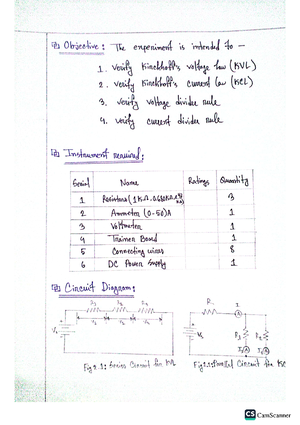 Objective: The experiment is intended to -
1. verify Kirchhoff's voltage law (KVL)
2. verify Kirchhoff's current law (KCL)
3. verify voltage divider rule
4. verify current divider rule
Instrument required:
Serial Name Ratings Quantity
1 Resistors (1KΩ, 0.68KΩ 3
2 Ammeter (0-50)A 1
3 Voltmeter 1
4 Trainer Board 1
5 Connecting wires 8
6 DC Power supply 1
Circuit Diagram:
Fig 2.1: Series Circuit for KVL
Parallel Circuit for KCL
CS CamScanner